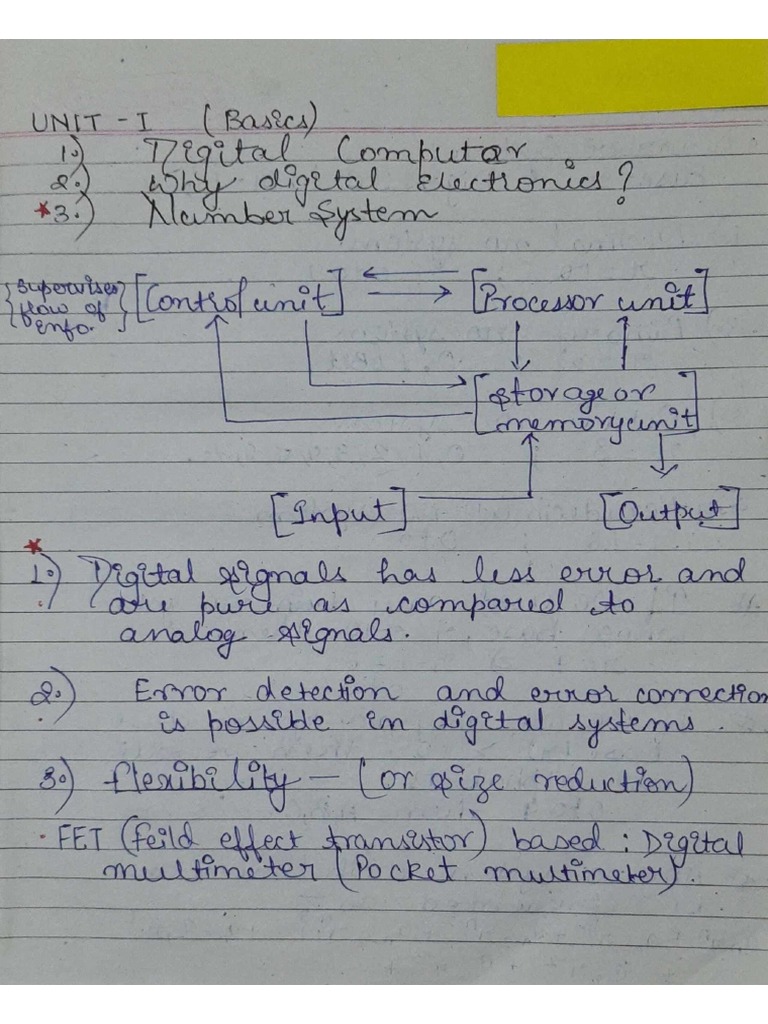 UNIT - I (Basics)
1.) Digital Computer
2.) Why digital Electronics?
*3.) Number System
{Supervises flow of Info.} [Control unit] [Processor unit]
[Storage or
memory unit]
[Input] [Output]
*
1.) Digital signals has less error and
are pure as compared to
analog signals.
2.) Error detection and error correction
is possible in digital systems.
3.) flexibility - (or size reduction)
• FET (feild effect transistor) based : Digital
multimeter (Pocket multimeter).